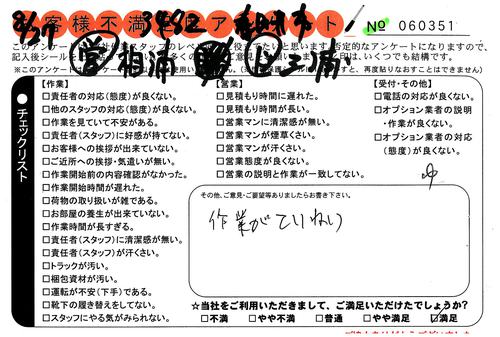 8/31 お客様不満足度アンケート No 060351
このアンケートは
記入後シールを
㊂ 相浦
三浦
チェックリスト
【作業】
□責任者の対応(態度)が良くない。
□他のスタッフの対応(態度)が良くない。
□作業を見ていて不安がある。
□責任者(スタッフ)に好感が持てない。
□お客様への挨拶が出来ていない。
□ご近所への挨拶・気遣いが無い。
□作業開始前の内容確認がなかった。
□作業開始時間が遅れた。
□荷物の取り扱いが雑である。
□お部屋の養生が出来ていない。
□作業時間が長すぎる。
□責任者(スタッフ)に清潔感が無い。
□責任者(スタッフ)が汗くさい。
□トラックが汚い。
□梱包資材が汚い。
□運転が不安(下手)である。
□靴下の履き替えをしてない。
□スタッフにやる気がみられない。
【営業】
□見積もり時間に遅れた。
□見積もり時間が長い。
□営業マンに清潔感が無い。
□営業マンが煙草くさい。
□営業マンが汗くさい。
□営業態度が良くない。
□営業の説明と作業が一致してない。
【受付・その他】
□電話の対応が良くない。
□オプション業者の説明
・作業が良くない。
□オプション業者の対応
(態度)が良くない。
その他、ご意見・ご要望等ありましたらお書き下さい。
作業がていねい
☆当社をご利用いただきまして、ご満足いただけたでしょうか?
□不満 □やや不満 □普通 □やや満足 □満足